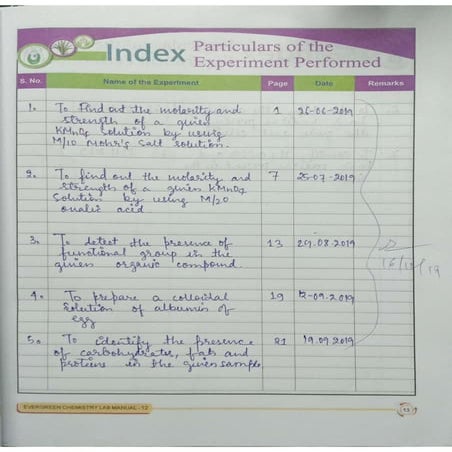 Index Particulars of the
Experiment Performed
S. No. Name of the Experiment Page Date Remarks
1. To Find out the molarity and 1 26-06-2019
strength of a given
KMnO4 solution by using
M/10 Mohr's salt solution.
2. To find out the molarity and 7 25-07-2019
strength of a given KMnO4
Solution by using M/20
oxalic acid
3. To detect the presence of 13 29.08.2019
functional group in the
given organic compound.
4. To prepare a colloidal 19 12-09.2019
solution of albumin of
egg
5. To identify the presence 21 19.09.2019
of carbohydrates, fats and
proteins in the given sample
16/10/19
EVERGREEN CHEMISTRY LAB MANUAL - 12